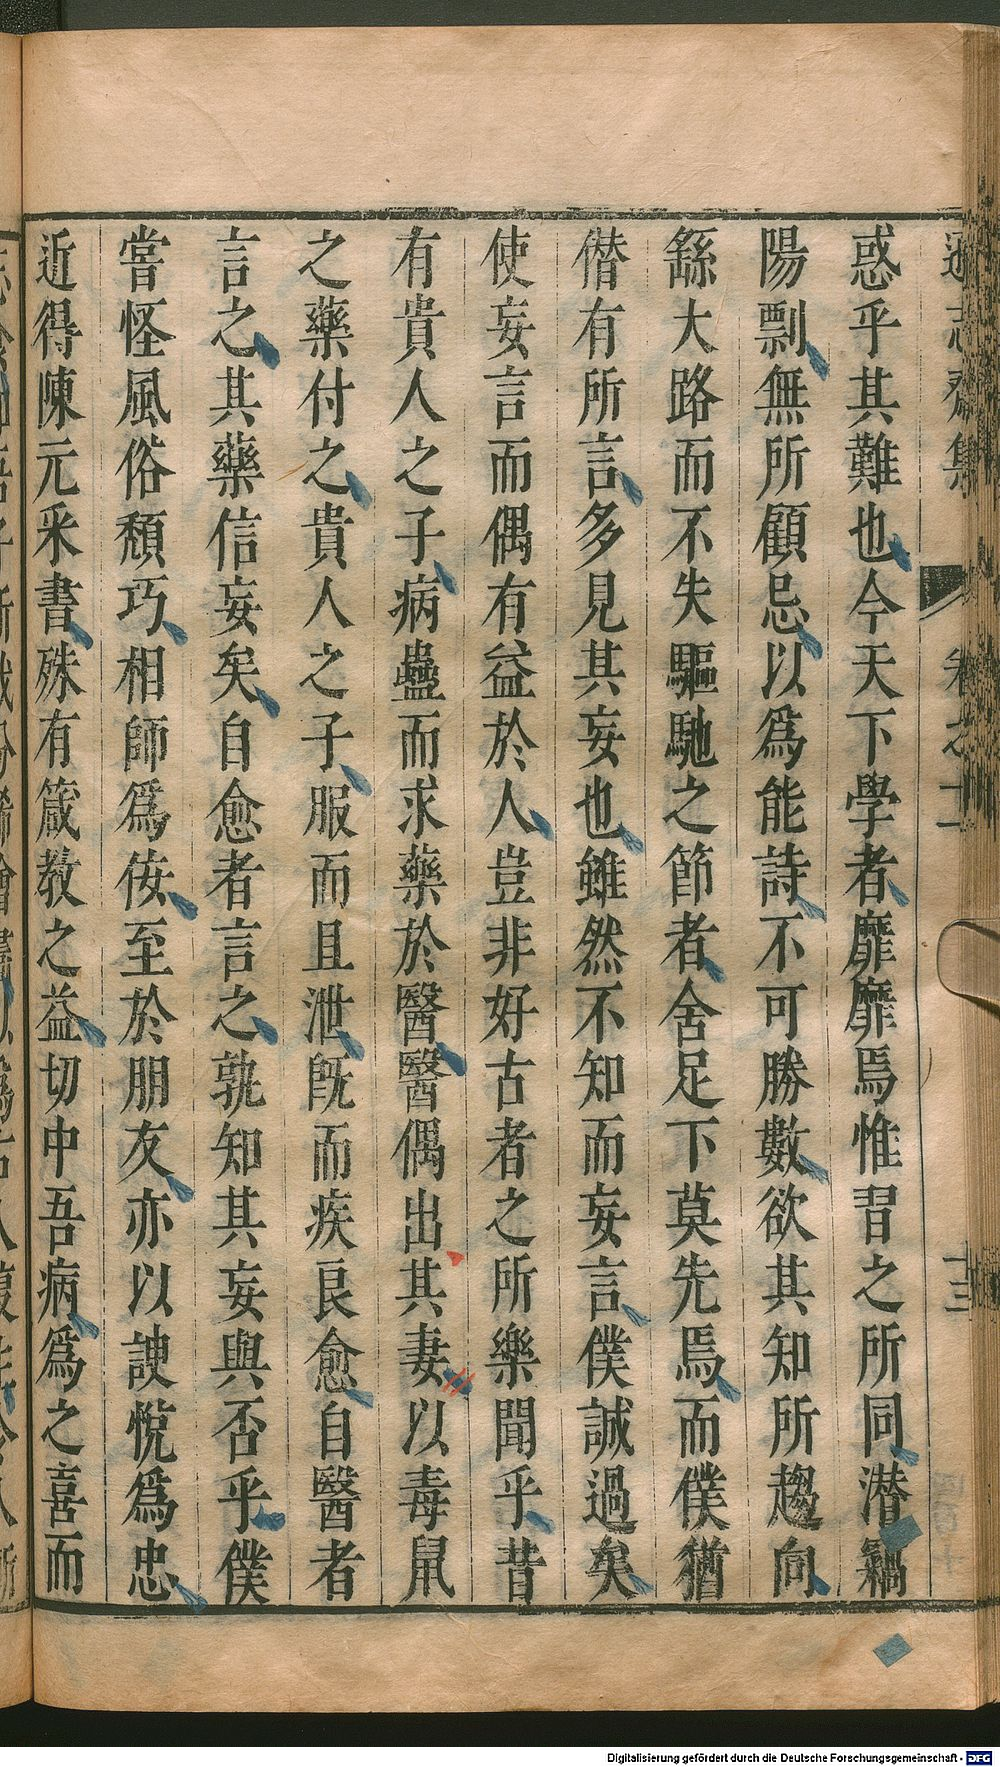 遜志齋集 卷之十一 十三
惑乎其難也今天下學者靡靡焉惟習之所同潜竊
陽剽無所顧忌以爲能詩不可勝數欲其知所趨向
繇大路而不失驅馳之節者舍足下莫先焉而僕猶
僭有所言多見其妄也雖然不知而妄言僕誠過矣
使妄言而偶有益於人豈非好古者之所樂聞乎昔
有貴人之子病蠱而求藥於醫醫偶出其妻以毒鼠
之藥付之貴人之子服而且泄旣而疾良愈自醫者
言之其藥信妄矣自愈者言之孰知其妄與否乎僕
嘗怪風俗頹巧相師爲佞至於朋友亦以諛悅爲忠
近得陳元采書殊有箴敎之益切中吾病爲之喜而
Digitalisierung gefördert durch die Deutsche Forschungsgemeinschaft - DFG